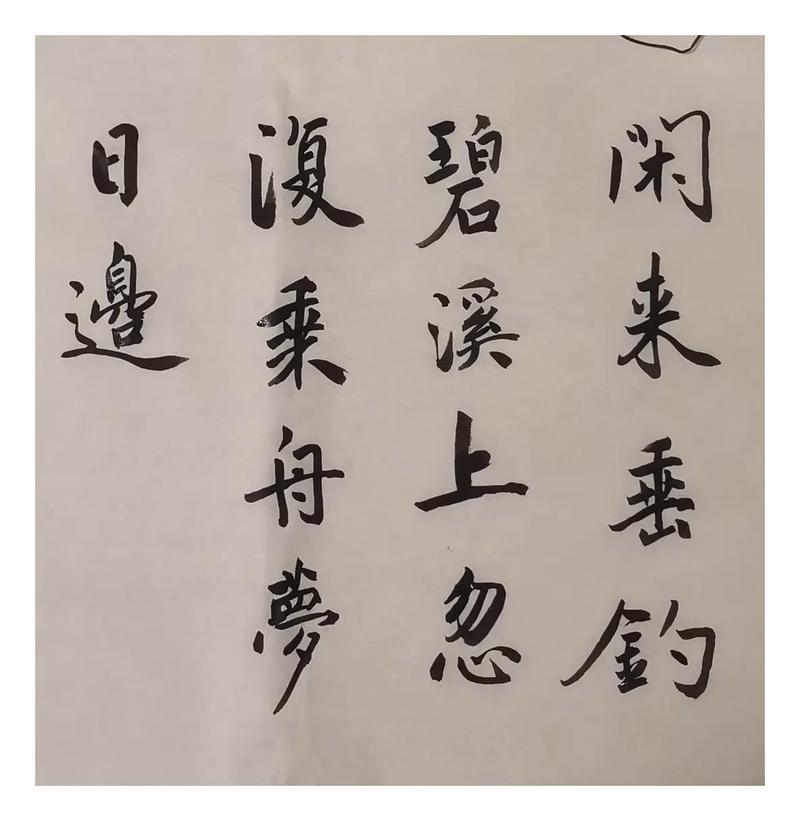 閑来垂釣
碧溪上忽
復乗舟夢
日邊